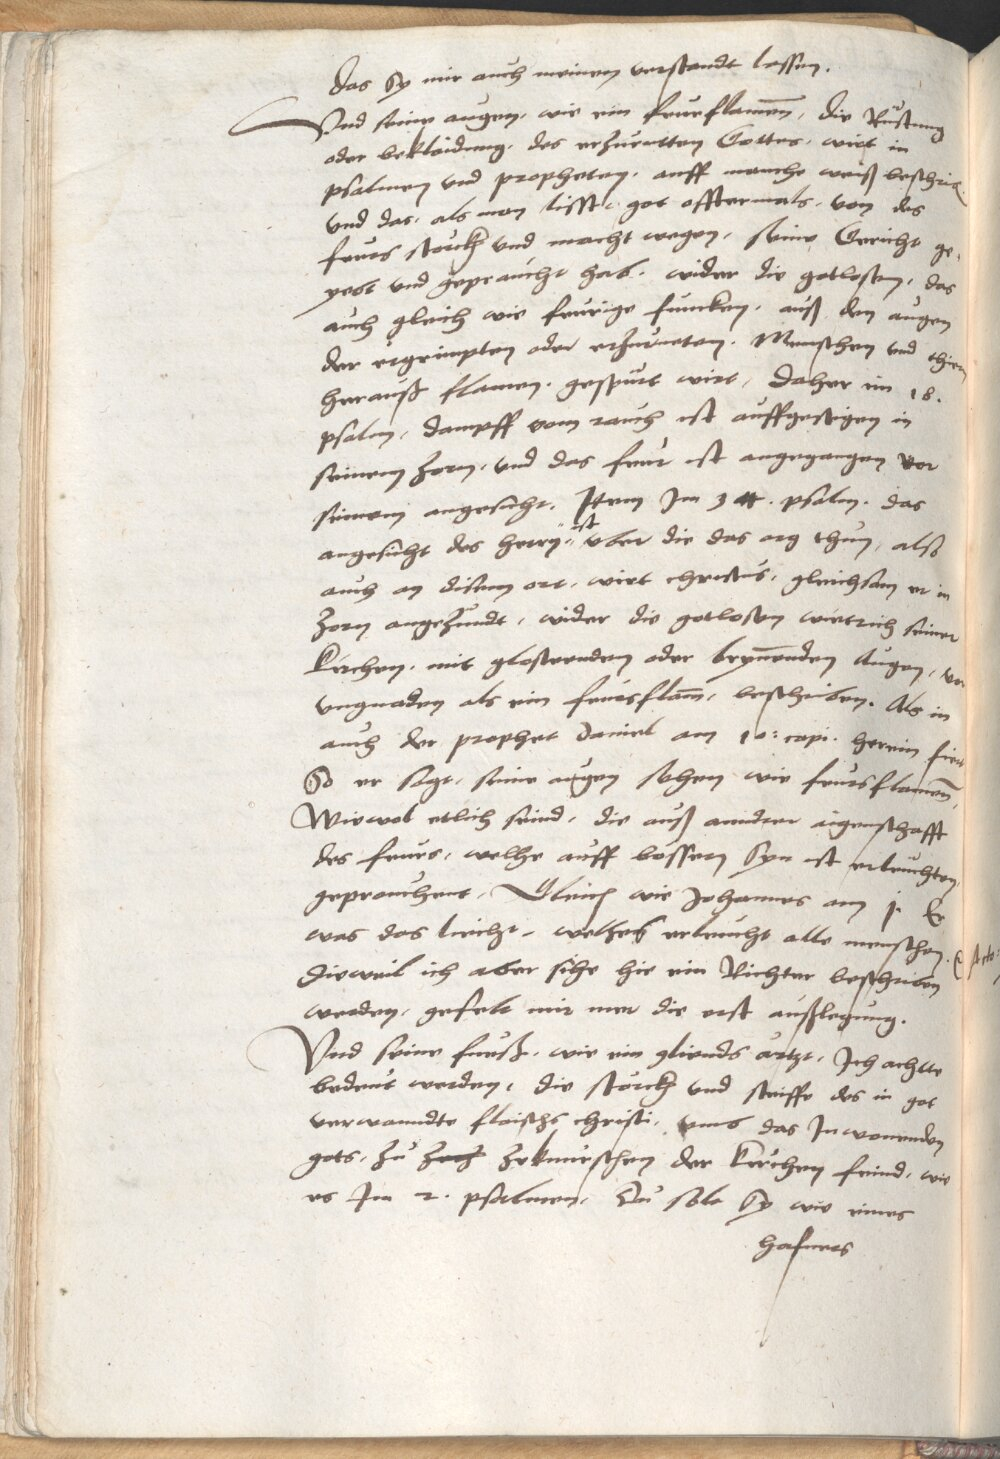 das sy mir auch meinen verstandt lassen.
Und seine augen, wie ein feurflamen, die Rüstung
oder bekleidung, des erzürntten Gottes, wirt in
psalmen und propheten, auff manche weiß beschrib
und das, als man lisst, got offtermals, von des
feurs störck und macht wegen, seine Gericht ge-
yebt und gepraucht hab, wider die gotlosen, das
auch gleich wie feurige funcken, auß den augen
der ergrimpten oder erzürneten, Menschen und thiern
herauß flamen, gespürt wirt, Daher im 18.
psalm, dampff vom rauch ist auffgestigen in
seinem zorn, und das feur ist angegangen vor
seinem angesicht. Item Im 34. psalm. das
angesicht des herrn ist uber die das arg thun, also
auch an disem ort, wirt christus, gleichsam er in
zorn angezündt, wider die gotlosen wietrich seiner
kirchen, mit glosteenden oder brynnenden Augen, vor
ungnaden als ein feursflam, beschriben. Als in
auch der prophet Daniel am 10: capi. herein fiert
So er sagt, seine augen sehen wie feursflamen,
Wiewol etlich seind, die auß anndrer aigenschafft
des feurs, welhe auff bessern syn ist erleuchten,
geprauchent, Gleich wie Johannes am j. Er
was das liecht, welhes erleucht alle menschen.
Dieweil ich aber sihe hie ein Richter beschriben
werden, gefelt mir mer die erst außlegung.
Und seine fueß, wie ein gliends ärtzt, Ich achtte
bedeut werden, die störck und steiffe des in got
verwanndte flaischs christi, umb das Inwonenden
gots, zu zerknürschen der kirchen feind, wie
es Im 2. psalmen, Du solt sy wie eines
hafners